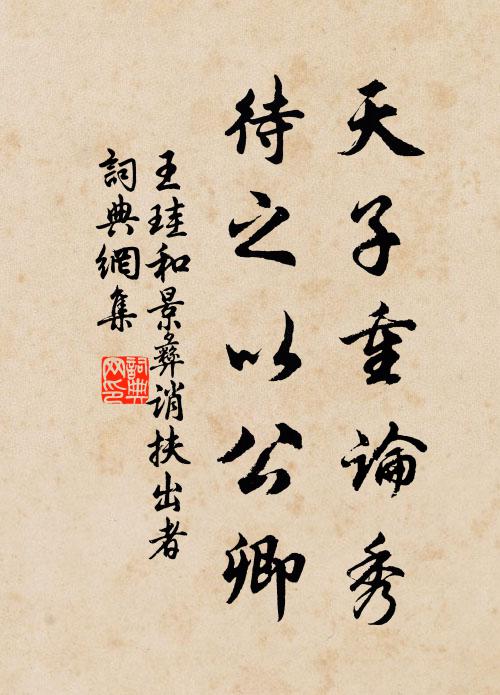 天子重論秀
待之以公卿
王珪和景彝誚扶出者
詞典網集
詞典
网印